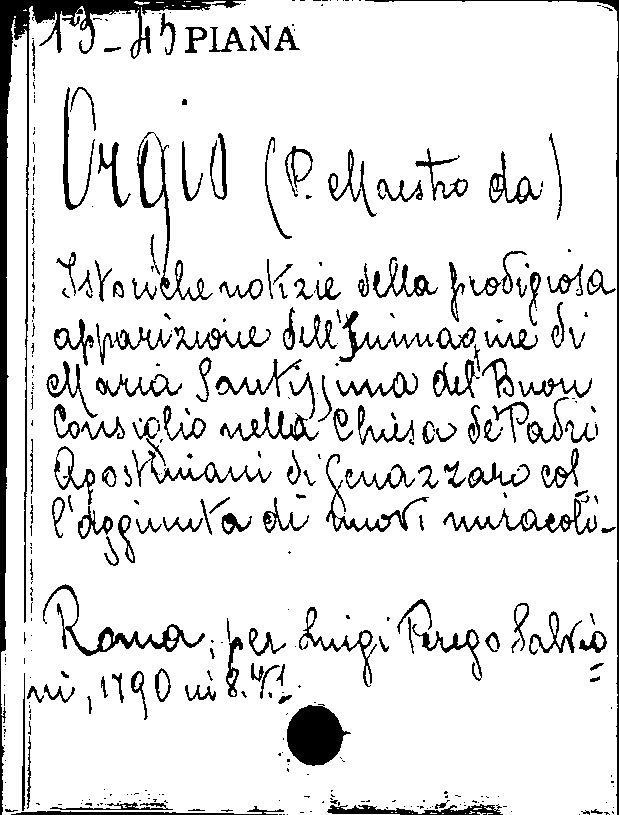 13-45 PIANA
Orgio (P. Maestro da)
Istoriche notizie della prodigiosa
apparizione dell'Immagine di
Maria Santissima del Buon
Consiglio nella Chiesa de' Padri
Agostiniani di Genazzaro col
l'aggiunta di nuovi miracoli-
Roma, per Luigi Perego Salvio=
ni, 1790 in 8. V. 1